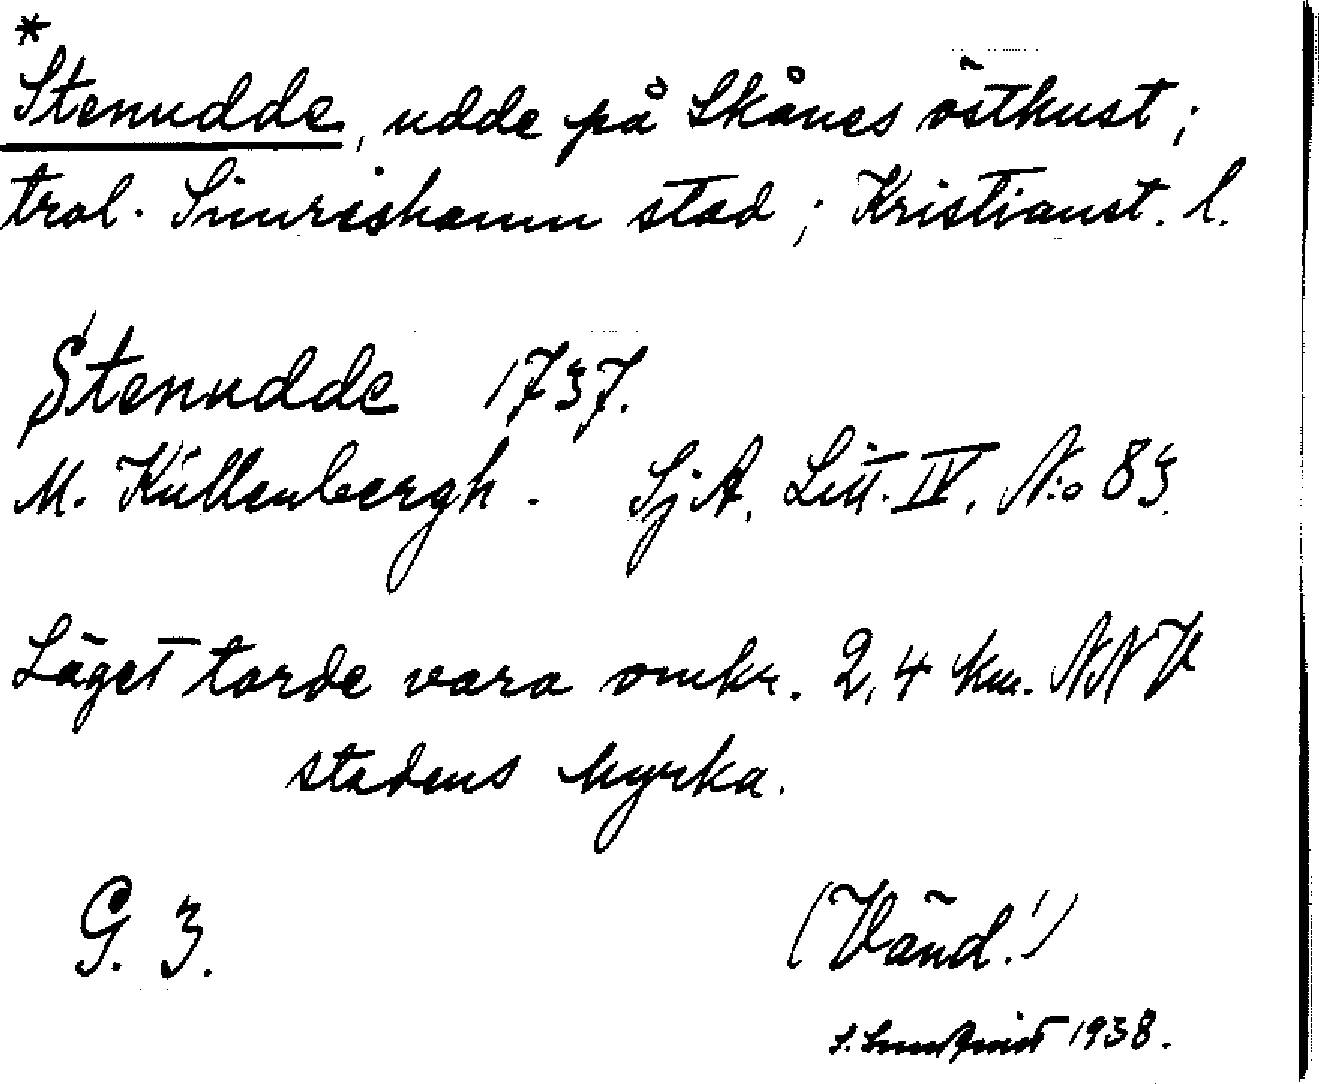 *
Stenudde, udde på Skånes östkust;
trol. Simrishamn stad; Kristianst. l.
Stenudde 1737.
M. Küllenbergh. SjA, Litt. IV, N:o 83.
Läget torde vara omkr. 2,4 km. NNV
stadens kyrka.
G. 3.
(Vänd!)
S. 1938.